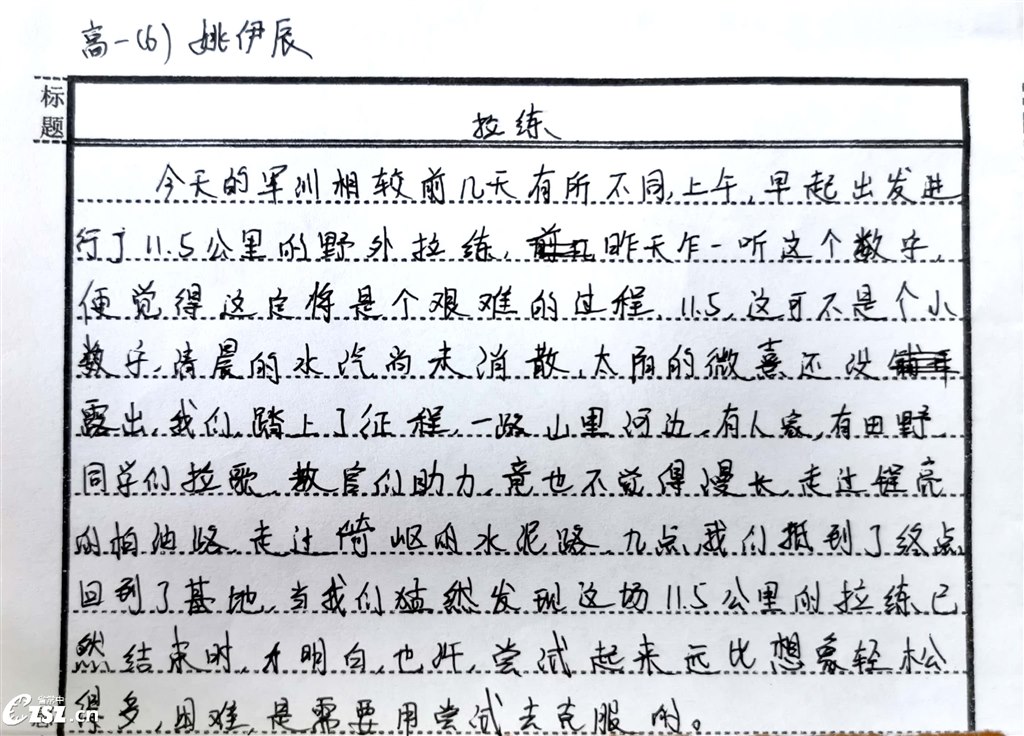 高一(6) 姚伊辰
标题
拉练
今天的军训相较前几天有所不同,上午,早起出发进
行了11.5公里的野外拉练,昨天乍一听这个数字,
便觉得这定将是个艰难的过程,11.5,这可不是个小
数字,清晨的水汽尚未消散,太阳的微熹还没
露出,我们,踏上了征程,一路山里河边,有人家,有田野,
同学们拉歌,教官们助力,竟也不觉得漫长,走过锃亮
的柏油路,走过崎岖的水泥路,九点,我们抵到了终点,
回到了基地,当我们猛然发现这场11.5公里的拉练已
然结束时,才明白,也许,尝试起来远比想象轻松
得多,困难,是需要用尝试去克服的。
省常中
CZSZ.cn